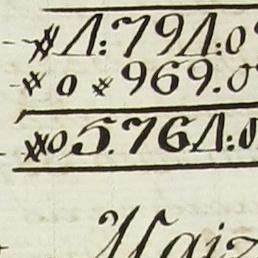 # 4:794:0
# 0 # 969.0
#0 5.764:0
Maiz